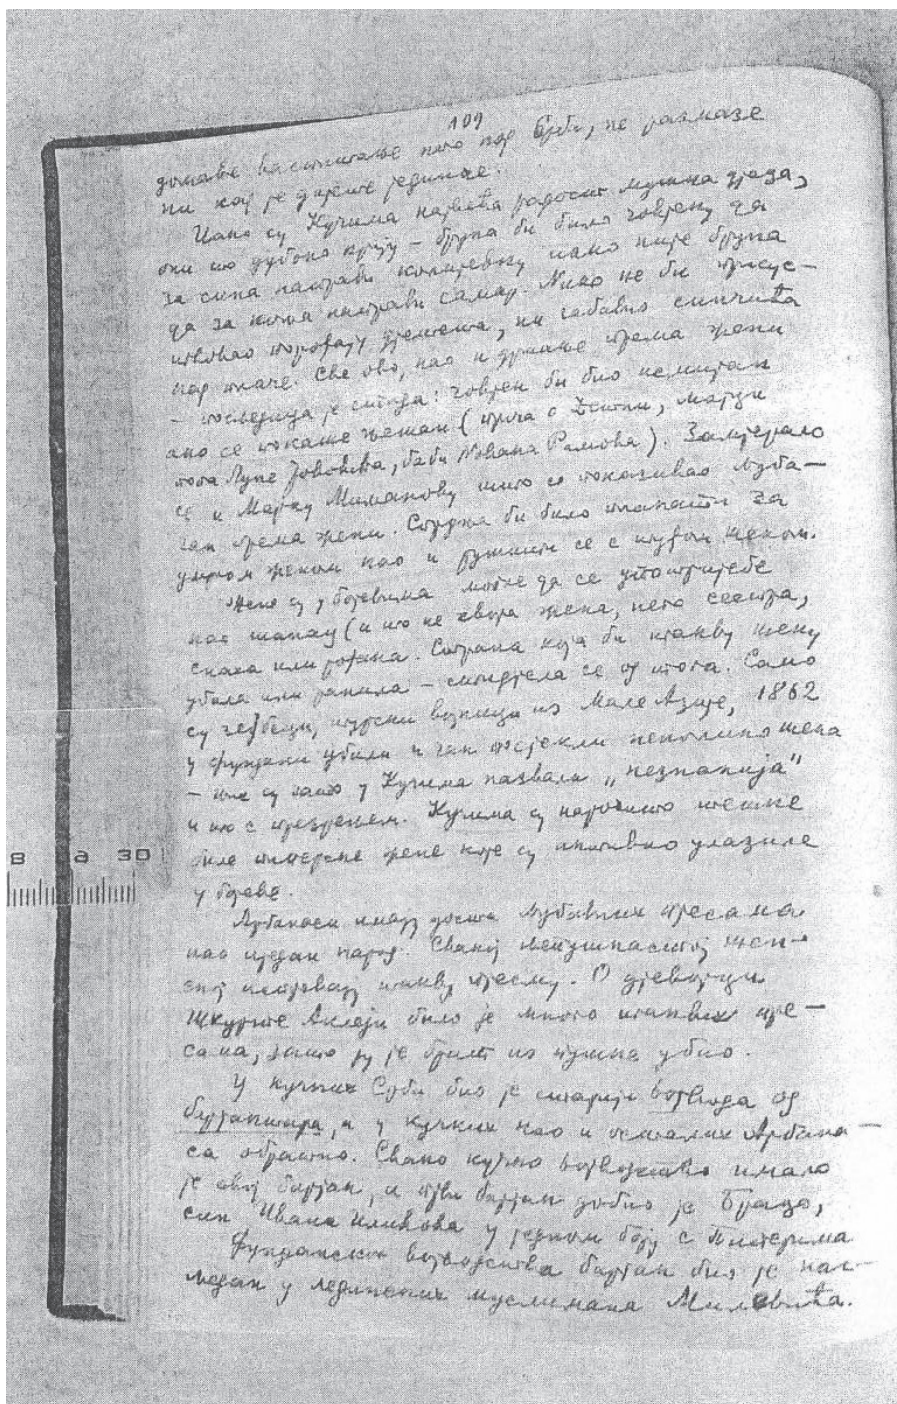 109
домаће васпитање него код Срба, не размазе
ни кад је дијете јединче.
Иако су Кучима највећа радост мушка дјеца,
они то дубоко крију – брука би било човјеку да
за сина направи колијевку иако није брука
да за коња направи самар. Нико не би присус–
твовао порођају дјетета, ни забавио синчића
кад плаче. Све ово, као и држање према жени
– посљедица је стида: човјек би био
ако се покаже њежан (прича о мајци
попа Луке Јововића, баби Рашова). Замјерало
се и Марку Миљанову што се показивао љуба–
зан према жени. Срамота би било плакати за
умрлом женом као и ружити се с туђом женом.
Жене су у бојевима могле да се употријебе
као (и то не своја жена, него сестра,
снаха или рођака. Страна која би такву жену
убила или ранила – стидјела се од тога. Само
су зејбеци, турски војници из Мале Азије, 1862
у Фундани убили и чак посјекли неколико жена
– па су зато у Кучима назвали „незнанија”
и то с презрењем. Кучима су нарочито тешке
биле жене које су активно улазиле
у бојеве.
Арбанаси имају доста љубавних пјесама
као ниједан народ. Свакој женској
испјевају такву пјесму. О дјевојци
Шкурте Аклеји било је много таквих пје–
сама, зато ју је брат из пушке убио.
У кучких Срба био је старији војвода од
барјактара, а у кучких као и осталих Арбана–
са обратно. Свако кучко војводство имало
је свој барјак, и први барјак добио је Брацо,
син Ивана Иликова у једном боју с Пиперима
Фундански војводства барјак био је нас–
љедан у мусломана Милевића.